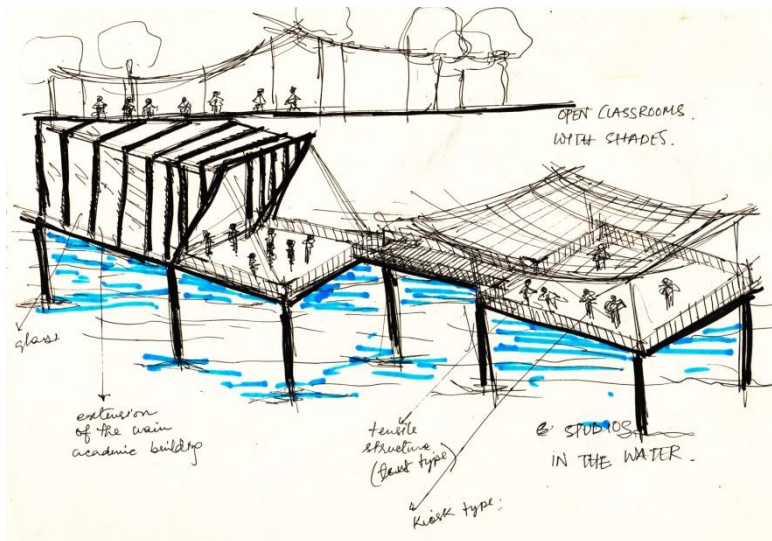 OPEN CLASSROOMS.
WITH SHADES.
glass
extension
of the main
academic building
tensile
structure
(tent type)
Kiosk type.
& STUDIOS
IN THE WATER.